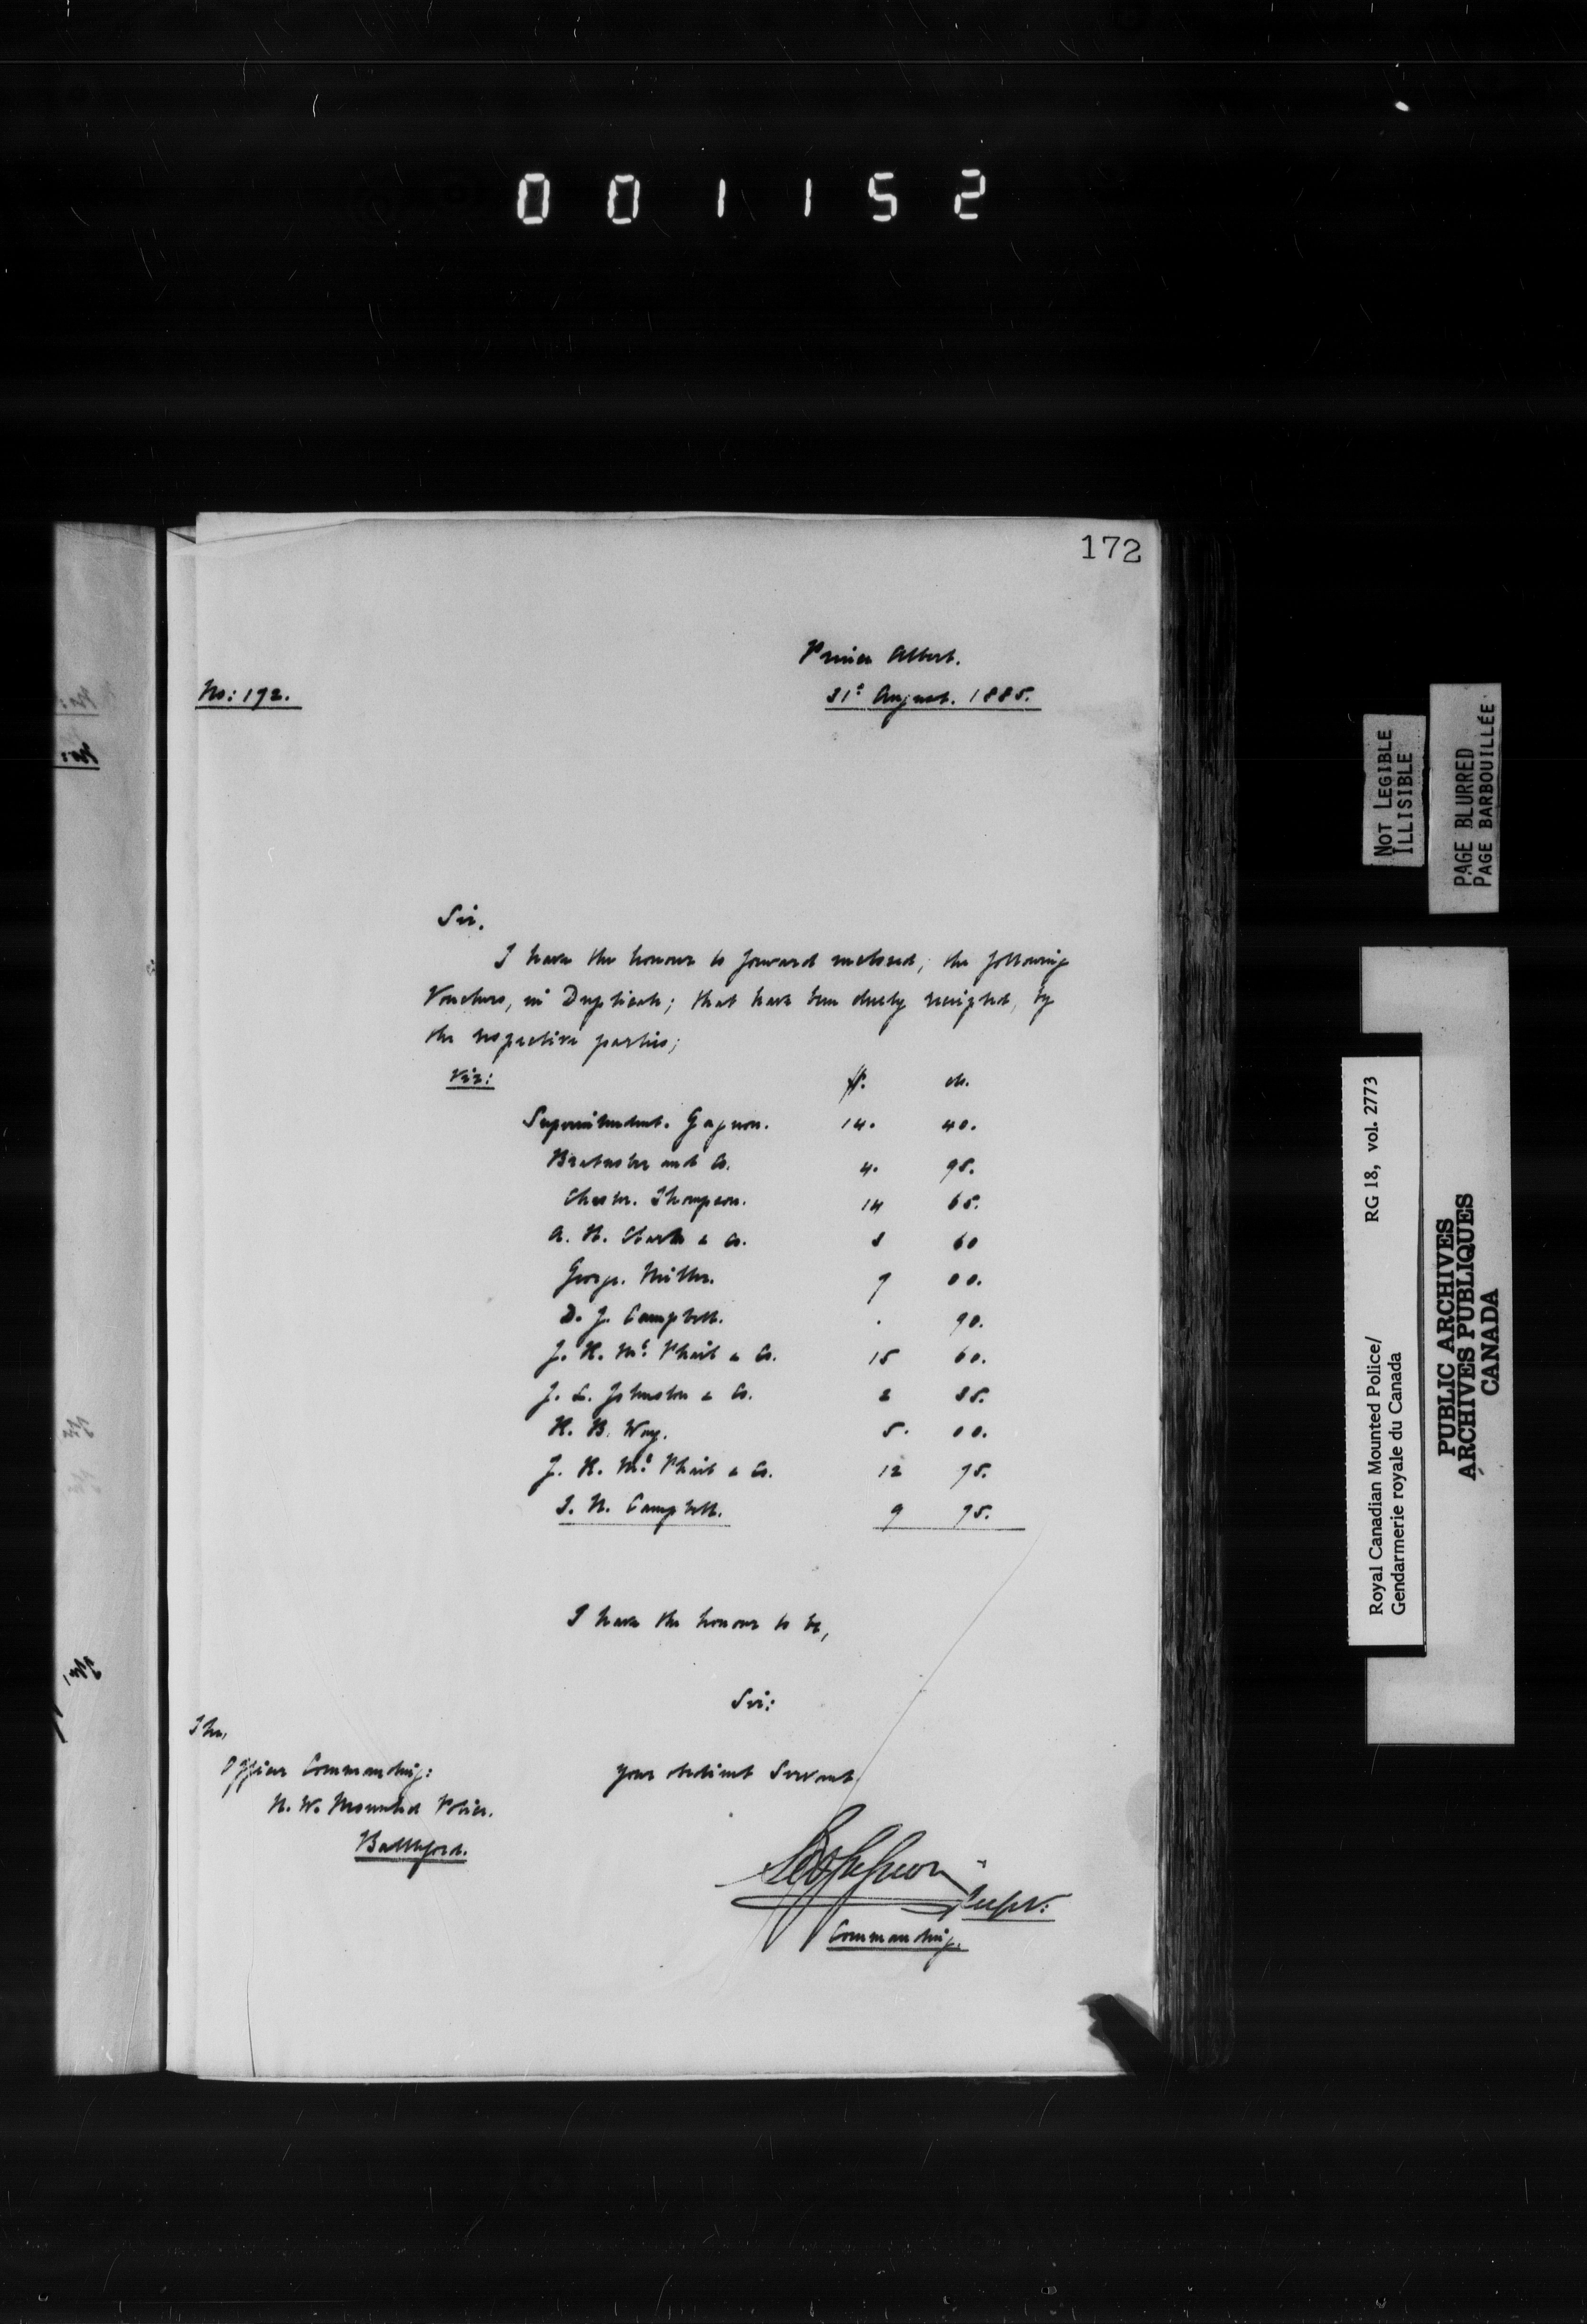 001152
172
Prince Albert.
No: 172. 31st August. 1885.
Sir,
I have the honour to forward enclosed, the following
Vouchers, in Duplicate; that have been duly receipted, by
the respective parties;
Viz: $. cts.
Superintendent. Gagnon. 14. 40.
and Co. 4. 95.
Thompson. 14 65.
A. H. Clarke & Co. 3 60
George. Miller. 7 00.
D. J. Campbell. . 90.
J. K. Mc. Phail & Co. 15 60.
J. L. Johnston & Co. 2 35.
K. B. Way. 5. 00.
J. K. Mc. Phail & Co. 12 75.
J. N. Campbell. 9 75.
I have the honour to be,
Sir:
The,
Officer Commanding: your obedient Servant
N. W. Mounted Police.
Battleford.
Supt:
Commanding.
NOT LEGIBLE
ILLISIBLE
PAGE BLURRED
PAGE BARBOUILLÉE
Royal Canadian Mounted Police/ RG 18, vol. 2773
Gendarmerie royale du Canada
PUBLIC ARCHIVES
ARCHIVES PUBLIQUES
CANADA